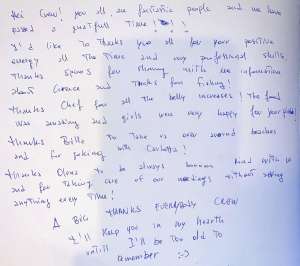 Hei Crew! you all are fantastic people and we have
passed a great full time!
I'd like to thanks you all for your positive
energy all the time and very professional skills.
Thanks Spiros for sharing with me information
about Greece and thanks for fishing!
thanks Chef for all the belly increases! The food
was amazing and girls were very happy for your plates!
thanks Bille to take us over second beaches
and for joking with Carlotta!
thanks Olena to be always kind with us
and for taking care of our needs without saying
anything every time!
A BIG THANKS EVERYBODY CREW
I'll keep you in my hearth
until I'll be too old to
remember :-)